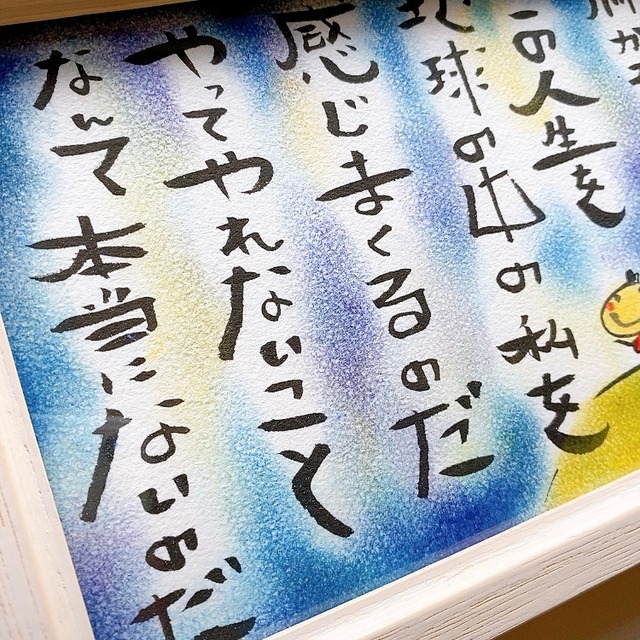 この人生を
地球の中の私を
感じまくるのだ
やってやれないこと
なんて本当にないのだ